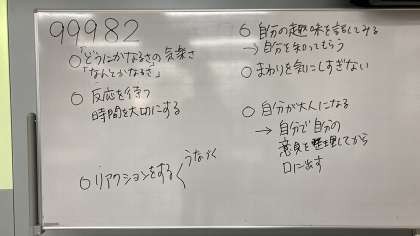 99982
「どうにかなるさ」の気楽さ
「なんとかなるさ」
○ 反応を待つ
時間を大切にする
○リアクションをする
うなづく
○ 自分の趣味を話してみる
→ 自分を知ってもらう
○ まわりを気にしすぎない
○ 自分が大人になる
→ 自分で自分の
意見を整理してから
口に出す